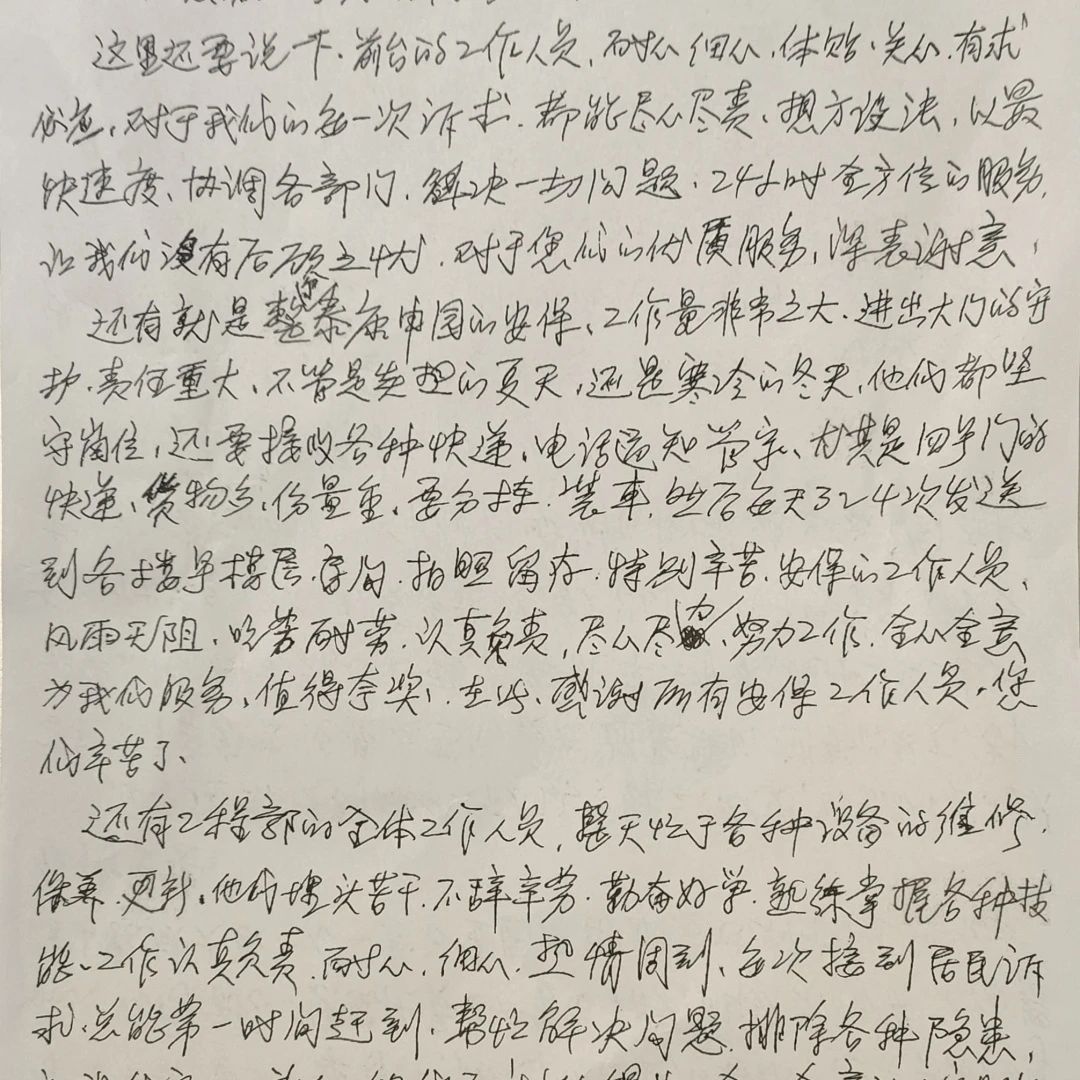 这里还要说一下、前台的工作人员，耐心细心，体贴、关心、有求
必应，对于我们的每一次诉求、都能尽心尽责、想方设法，以最
快速度、协调各部门、解决一切问题、24小时全方位的服务，
让我们没有后顾之忧、对于您们的优质服务，深表谢意，
还有就是整个泰府申园的安保、工作量非常之大、进出大门的守
护、责任重大、不管是炎热的夏天，还是寒冷的冬天，他们都坚
守岗位，还要接收各种快递、电话通知管家、尤其是四号门的
快递、货物多、份量重、要分拣、装车、然后每天3～4次发送
到各楼号楼层、房间、拍照留存、特别辛苦、安保的工作人员、
风雨无阻、吃苦耐劳、认真负责，尽心尽力、努力工作、全心全意
为我们服务、值得夸奖、在此、感谢所有安保工作人员、您
们辛苦了、
还有工程部的全体工作人员，整天忙于各种设备的维修、
保养、更新、他们埋头苦干、不辞辛劳、勤奋好学、熟练掌握各种技
能、工作认真负责、耐心、细心、热情周到、每次接到居民诉
求、总能第一时间赶到、帮忙解决问题、排除各种隐患，